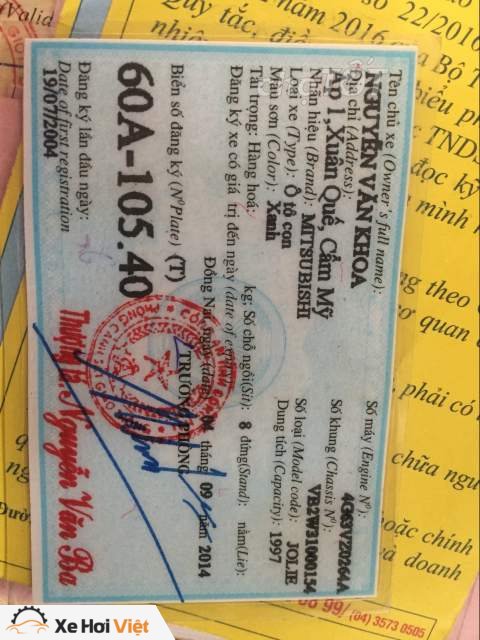 Tên chủ xe (Owner's full name):
NGUYỄN VĂN KHOA
Địa chỉ (Address):
Ấp 1, Xuân Quế, Cẩm Mỹ
Nhãn hiệu (Brand): MITSUBISHI
Loại xe (Type): Ô tô con
Màu sơn (Color): Xanh
Tải trọng: Hàng hoá: kg; Số chỗ ngồi (Sit): 8 đứng (Stand): nằm (Lie):
Đăng ký xe có giá trị đến ngày (date of expiry)
Đồng Nai, ngày (date) tháng 09 năm 2014
Biển số đăng ký (N°Plate) (T)
TRƯỞNG PHÒNG
60A-105.40
Đăng ký lần đầu ngày:
Date of first registration
19/07/2004
Thượng tá Nguyễn Văn Ba
Số máy (Engine N°):
4G63VZ0264A
Số khung (Chassis N°):
VB2W31000154
Số loại (Model code): JOLIE
Dung tích (Capacity): 1997
Valid
Quy tắc,
22/2016
năm 2016 của Bộ T
biểu ph
TNDS
đọc kỹ
mình
ng theo
ơ quan
phải có
chữa ngu
oặc chính
à doanh
99/ (04) 3573 0505
Xe Hơi Việt